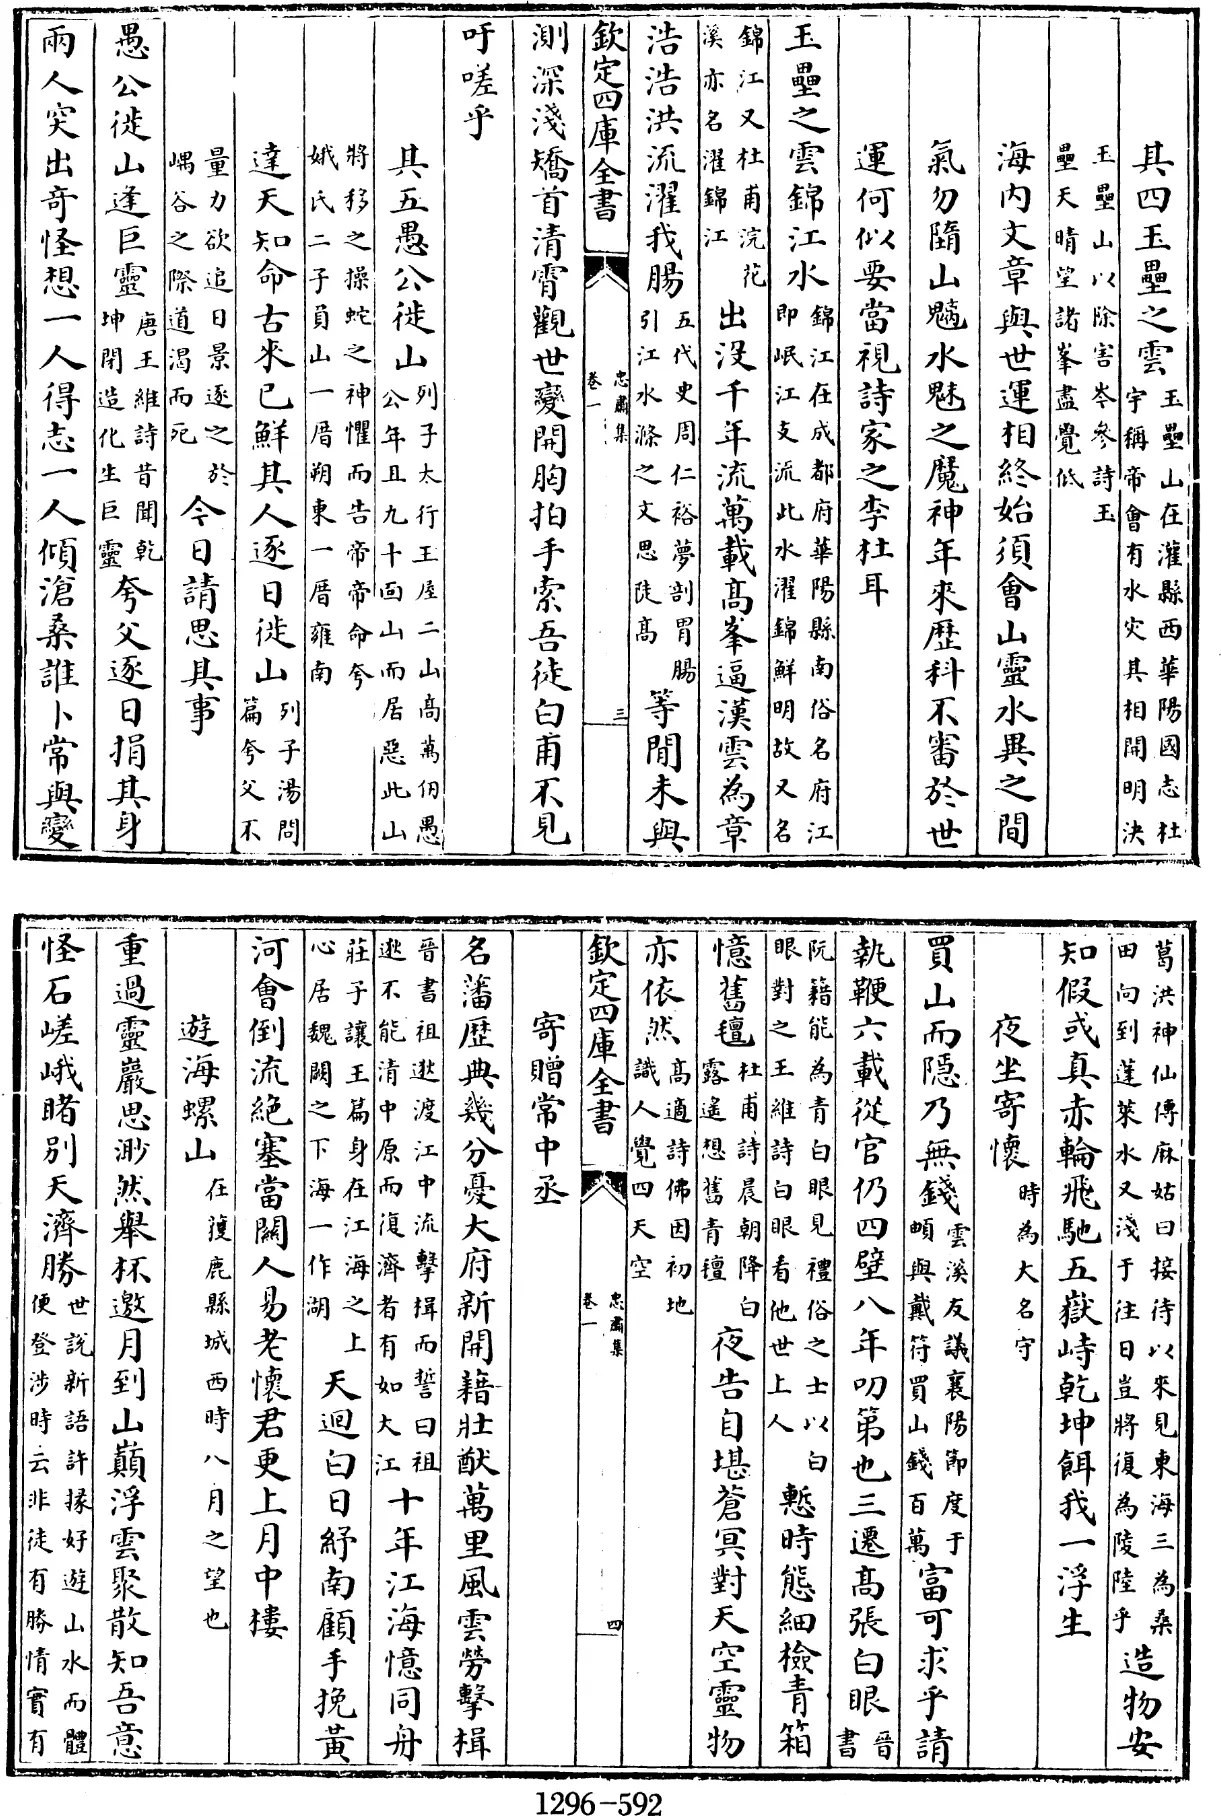 其四玉壘之雲玉壘山在灌縣西華陽國志杜宇稱帝會有水灾其相開明決
玉壘山以除害岑參詩玉壘天晴望諸峯盡覺低
海内文章與世運相終始須會山靈水異之間
氣勿隨山魑水魅之魔神年來歷科不審於世
運何似要當視詩家之李杜耳
玉壘之雲錦江水錦江在成都府華陽縣南俗名府江即岷江支流此水濯錦鮮明故又名
錦江又杜甫浣花溪亦名濯錦江出没千年流萬載髙峯逼漢雲為章
浩浩洪流濯我腸五代史周仁裕夢剖胃腸引江水滌之文思陡髙等閒未與
欽定四庫全書 忠肅集 卷一 三
測深淺矯首清霄觀世變開胸拍手索吾徒白甫不見
吁嗟乎
其五愚公徙山列子太行王屋二山髙萬仞愚公年且九十面山而居惡此山
將移之操蛇之神懼而告帝帝命夸娥氏二子員山一厝朔東一厝雍南
達天知命古來已鮮其人逐日徙山列子湯問篇夸父不
量力欲追日景逐之於嵎谷之際道渴而死今日請思其事
愚公徙山逢巨靈唐王維詩昔聞乾坤閉造化生巨靈夸父逐日捐其身
兩人突出奇怪想一人得志一人傾滄桑誰卜常與變
葛洪神仙傳麻姑曰接待以來見東海三為桑田向到蓬萊水又淺于往日豈將復為陵陸乎造物安
知假或真赤輪飛馳五嶽峙乾坤餌我一浮生
夜坐寄懷時為大名守
買山而隱乃無錢雲溪友議襄陽節度于頔與戴符買山錢百萬富可求乎請
執鞭六載從官仍四壁八年叨第也三遷髙張白眼晉書
阮籍能為青白眼見禮俗之士以白眼對之王維詩白眼看他世上人慙時態細檢青箱
憶舊氊杜甫詩晨朝降白露遙想舊青氊夜告自堪蒼冥對天空靈物
亦依然髙適詩佛因初地識人覺四天空
欽定四庫全書 忠肅集 卷一 四
寄贈常中丞
名藩歷典幾分憂大府新開藉壯猷萬里風雲勞擊楫
晉書祖逖渡江中流擊楫而誓曰祖逖不能清中原而復濟者有如大江十年江海憶同舟
莊子讓王篇身在江海之上心居魏闕之下海一作湖天迴白日紓南顧手挽黄
河會倒流絶塞當關人易老懷君更上月中樓
遊海螺山在獲鹿縣城西時八月之望也
重過靈巖思渺然舉杯邀月到山巔浮雲聚散知吾意
怪石嵯峨睹别天濟勝世說新語許掾好遊山水而體便登涉時云非徒有勝情實有
1296–592